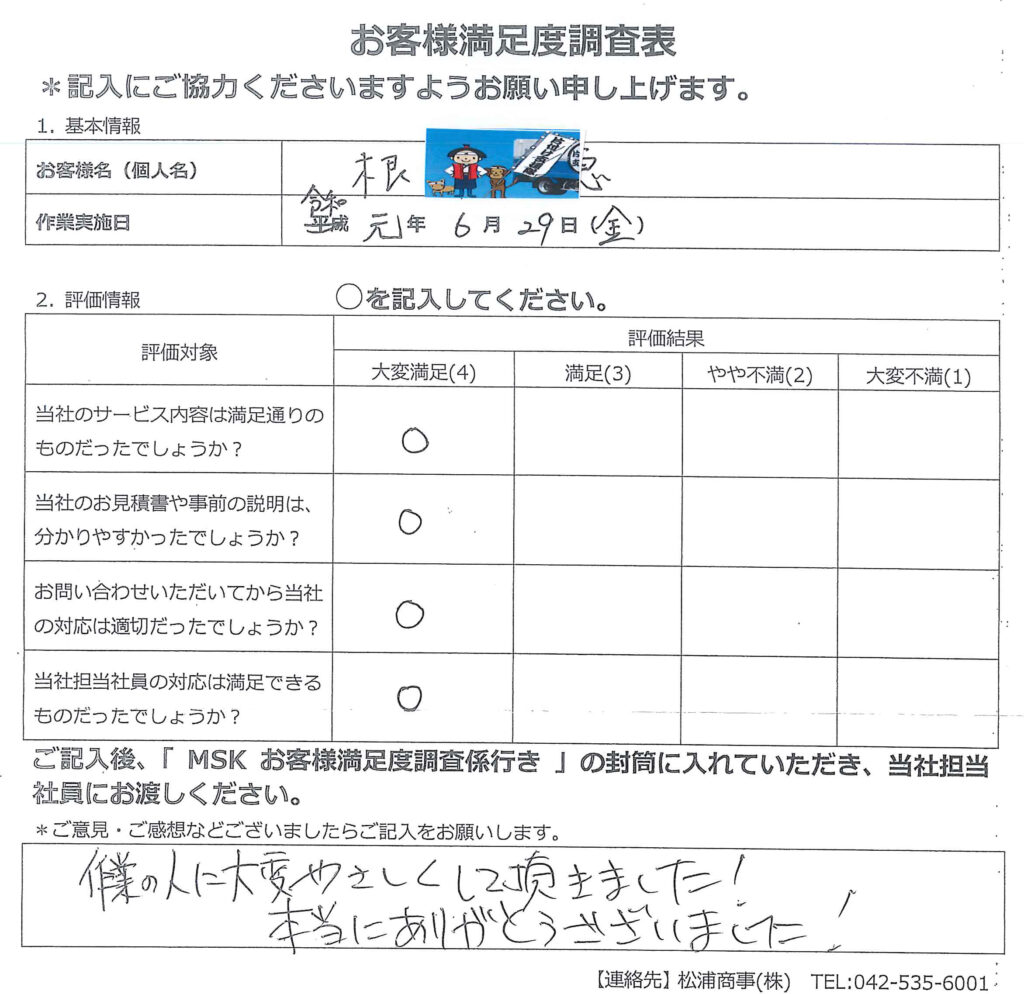 お客様満足度調査表
＊記入にご協力くださいますようお願い申し上げます。
1. 基本情報
お客様名（個人名） 根
作業実施日 令和 平成 元年 6月 29日(金)
2. 評価情報 ○を記入してください。
評価対象 評価結果
大変満足(4) 満足(3) やや不満(2) 大変不満(1)
当社のサービス内容は満足通りの
ものだったでしょうか？ ○
当社のお見積書や事前の説明は、
分かりやすかったでしょうか？ ○
お問い合わせいただいてから当社
の対応は適切だったでしょうか？ ○
当社担当社員の対応は満足できる
ものだったでしょうか？ ○
ご記入後、「 MSK お客様満足度調査係行き 」の封筒に入れていただき、当社担当
社員にお渡しください。
＊ご意見・ご感想などございましたらご記入をお願いします。
作業の人に大変やさしくして頂きました！
本当にありがとうございました！
【連絡先】松浦商事(株) TEL:042-535-6001